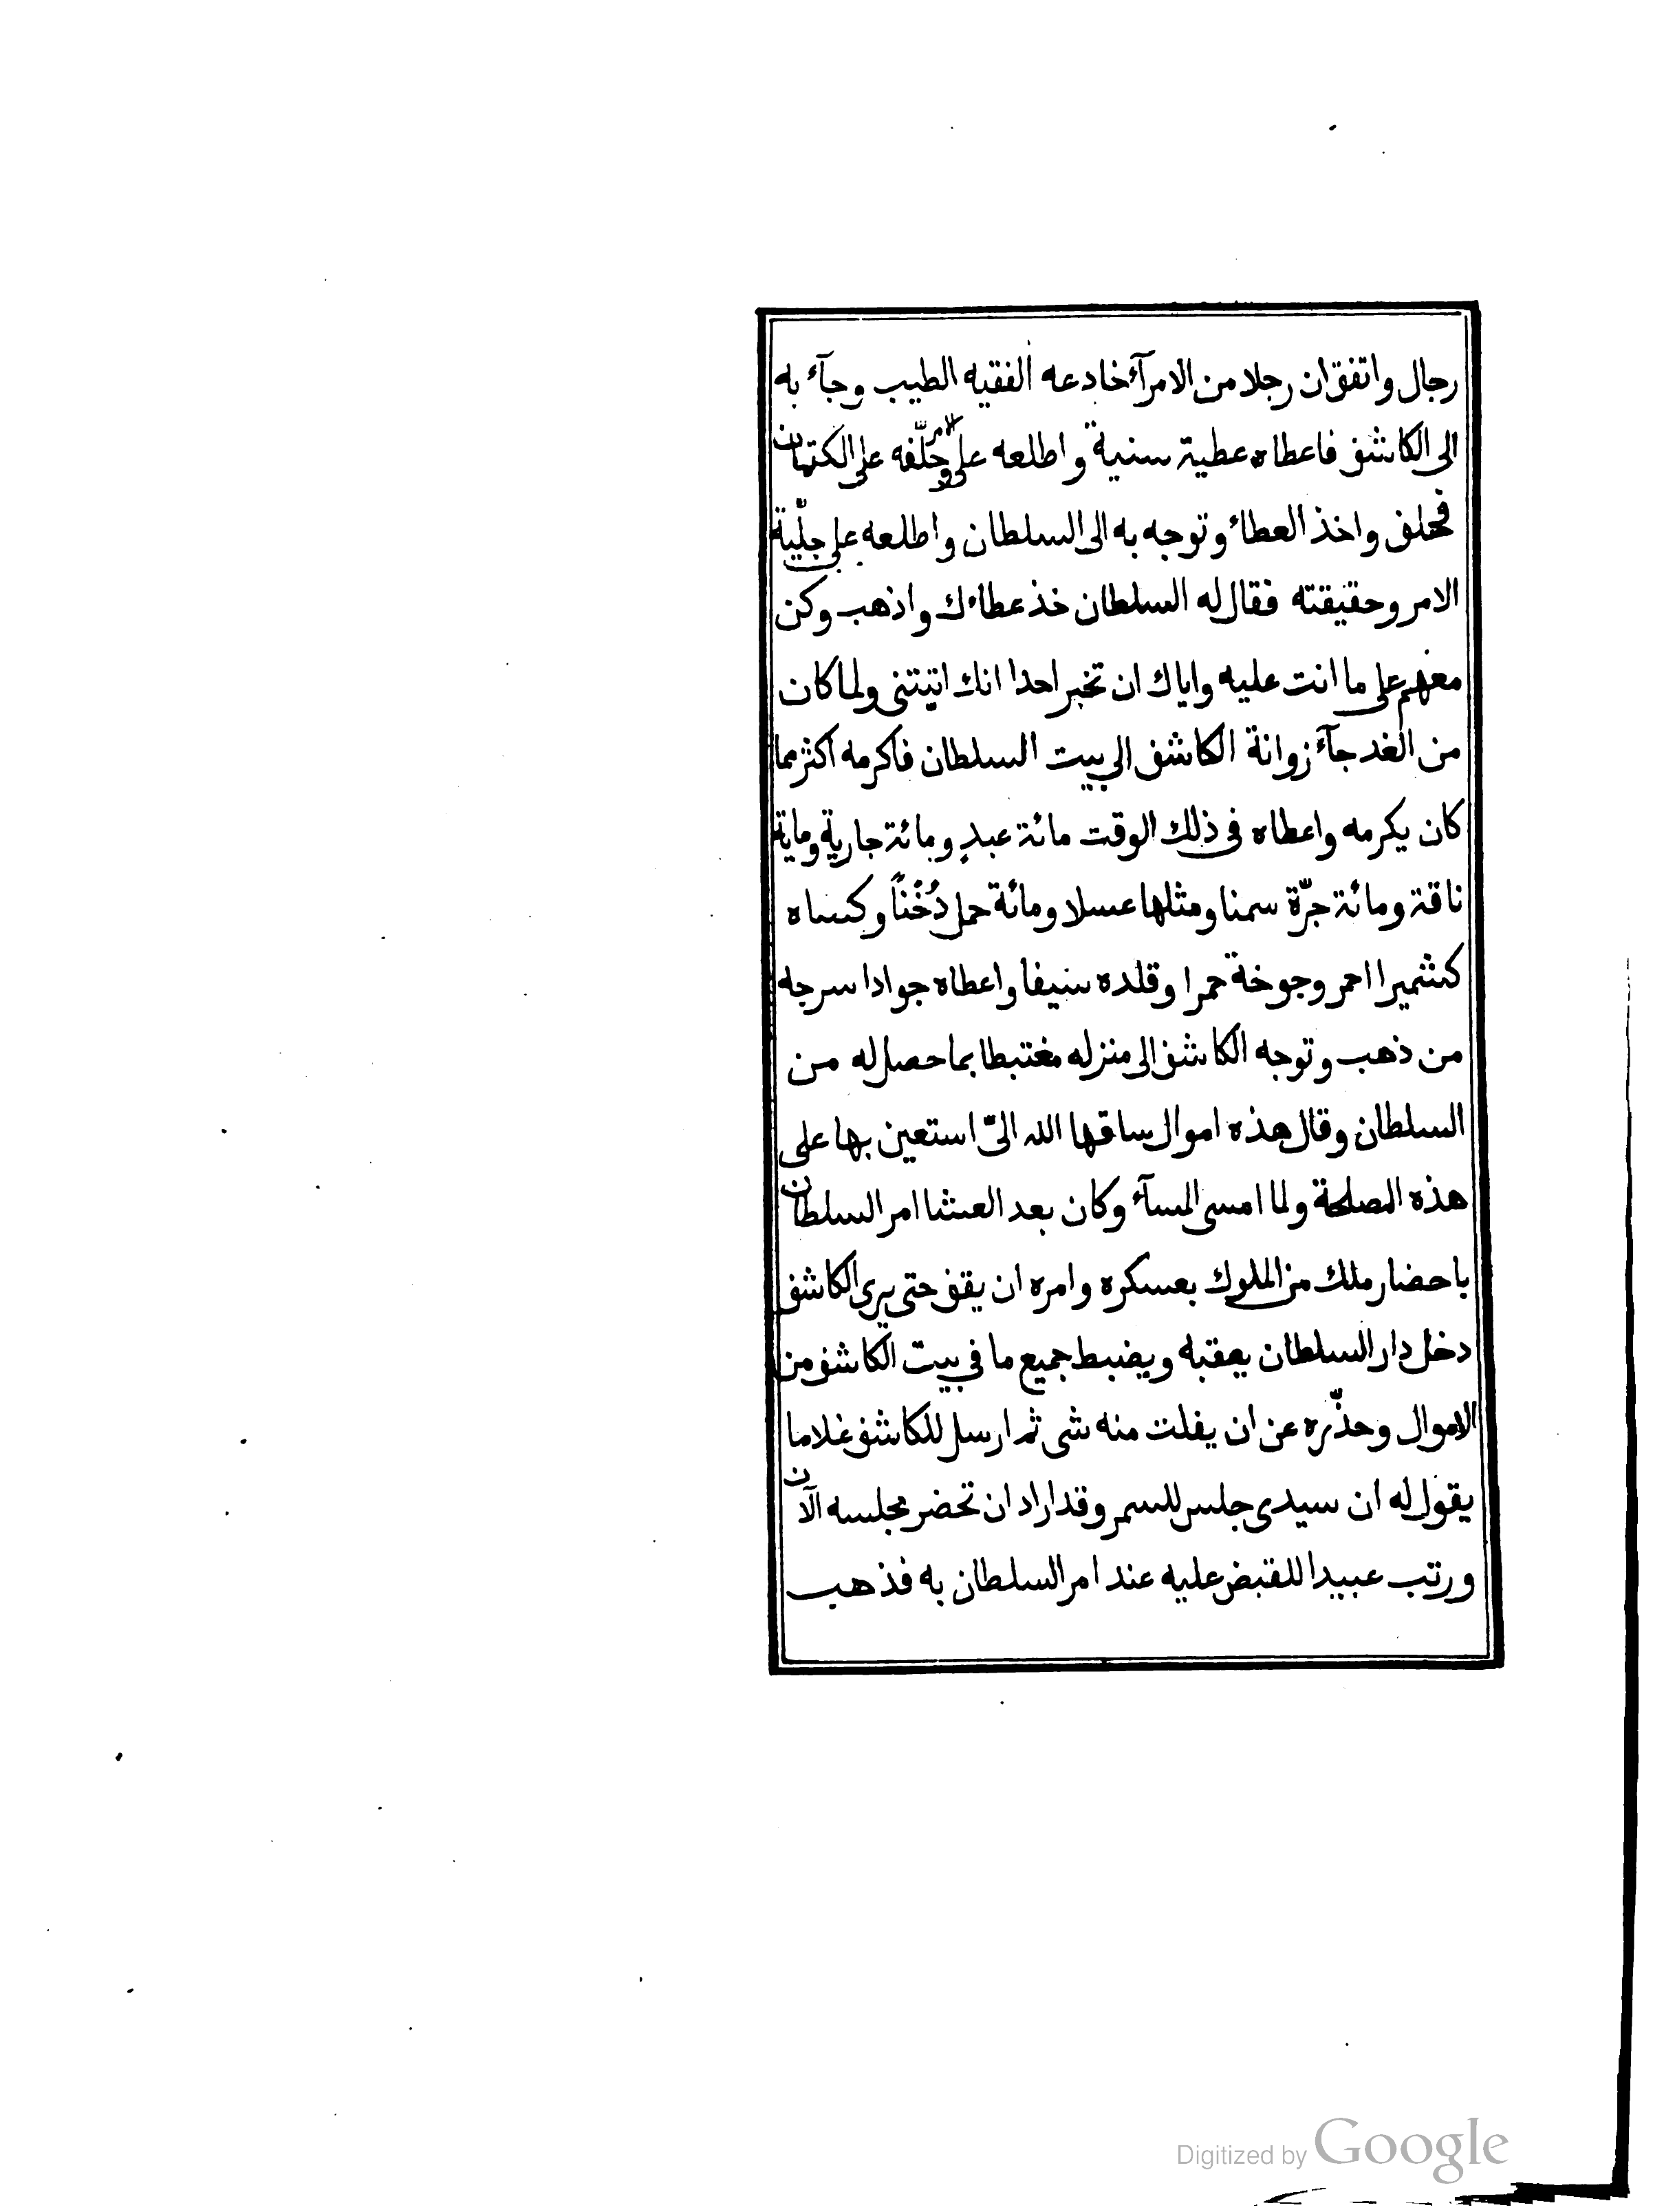 رجال واتفق ان رجلا من الامرآء خادعه الفقيه الطيب وجآء به
الى الكاشف فاعطاه عطية سنية واطلعه على الامر وحلّفه على الكتمان
فحلف واخذ العطاء وتوجه به الى السلطان واطلعه على جلّية
الامر وحقيقته فقال له السلطان خذ عطاءك واذهب وكن
معهم على ما انت عليه واياك ان تخبر احدا انك اتيتنى ولما كان
من الغد جآء زوانة الكاشف الى بيت السلطان فاكرمه اكثر مما
كان يكرمه واعطاه فى ذلك الوقت مائة عبدٍ ومائة جارية وماية
ناقة ومائة جرّة سمنا ومثلها عسلا ومائة حمل دُخْناً وكساه
كشميرا احمر وجوخة حمرا وقلده سيفا واعطاه جوادا سرجه
من ذهب وتوجه الكاشف الى منزله مغتبطا بما حصل له من
السلطان وقال هذه اموال ساقها الله الىّ استعين بها على
هذه المصلحة ولما امسى المسآء وكان بعد العشا امر السلطان
باحضار ملك من الملوك بعسكره وامره ان يقف حتى يرى الكاشف
دخل دار السلطان يعقبه ويضبط جميع ما فى بيت الكاشف من
الاموال وحذّره عن ان يفلت منه شى ثم ارسل للكاشف غلاما
يقول له ان سيدى جلس للسمر وقد اراد ان تحضر مجلسه الآن
ورتب عبيدا للقبض عليه عند امر السلطان به فذهب
Digitized by Google